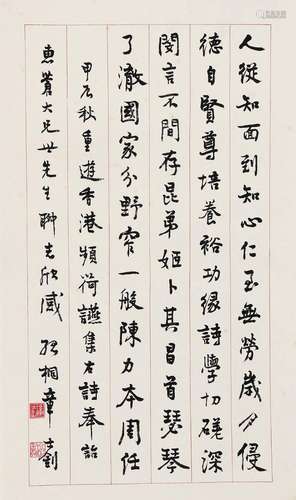 人從知面到知心仁至無勞歲月侵
德自賢尊培養裕功緣詩學切磋深
閔言不間存昆弟姬卜其昌首瑟琴
了澈國家分野窄一般陳力本周任
甲辰秋重遊香港頻荷讌集右詩奉詒
惠蒼大兄世先生聊志欣感 孤桐章士釗